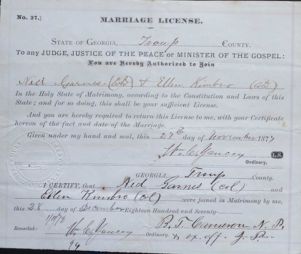 No. 27.
MARRIAGE LICENSE.
STATE OF GEORGIA, Troup COUNTY.
To any JUDGE, JUSTICE OF THE PEACE or MINISTER OF THE GOSPEL:
You are Hereby Authorized to Join
(Col) & Ellen Kimbro (Col)
In the Holy State of Matrimony, according to the Constitution and Laws of this
State; and for so doing, this shall be your sufficient License.
And you are hereby required to return this License to me, with your Certificate
hereon of the fact and date of the Marriage.
Given under my hand and seal, this 27th day of November 1877
L.S.
Ordinary.
GEORGIA, Troup County.
I CERTIFY, that Ned Garnes (Col) and
Ellen Kimbro (Col) were joined in Matrimony by me,
this 28 day of December Eighteen Hundred and Seventy
R. T. Cameron N. P.
Recorded: Ordinary. & ex. off. J. P.